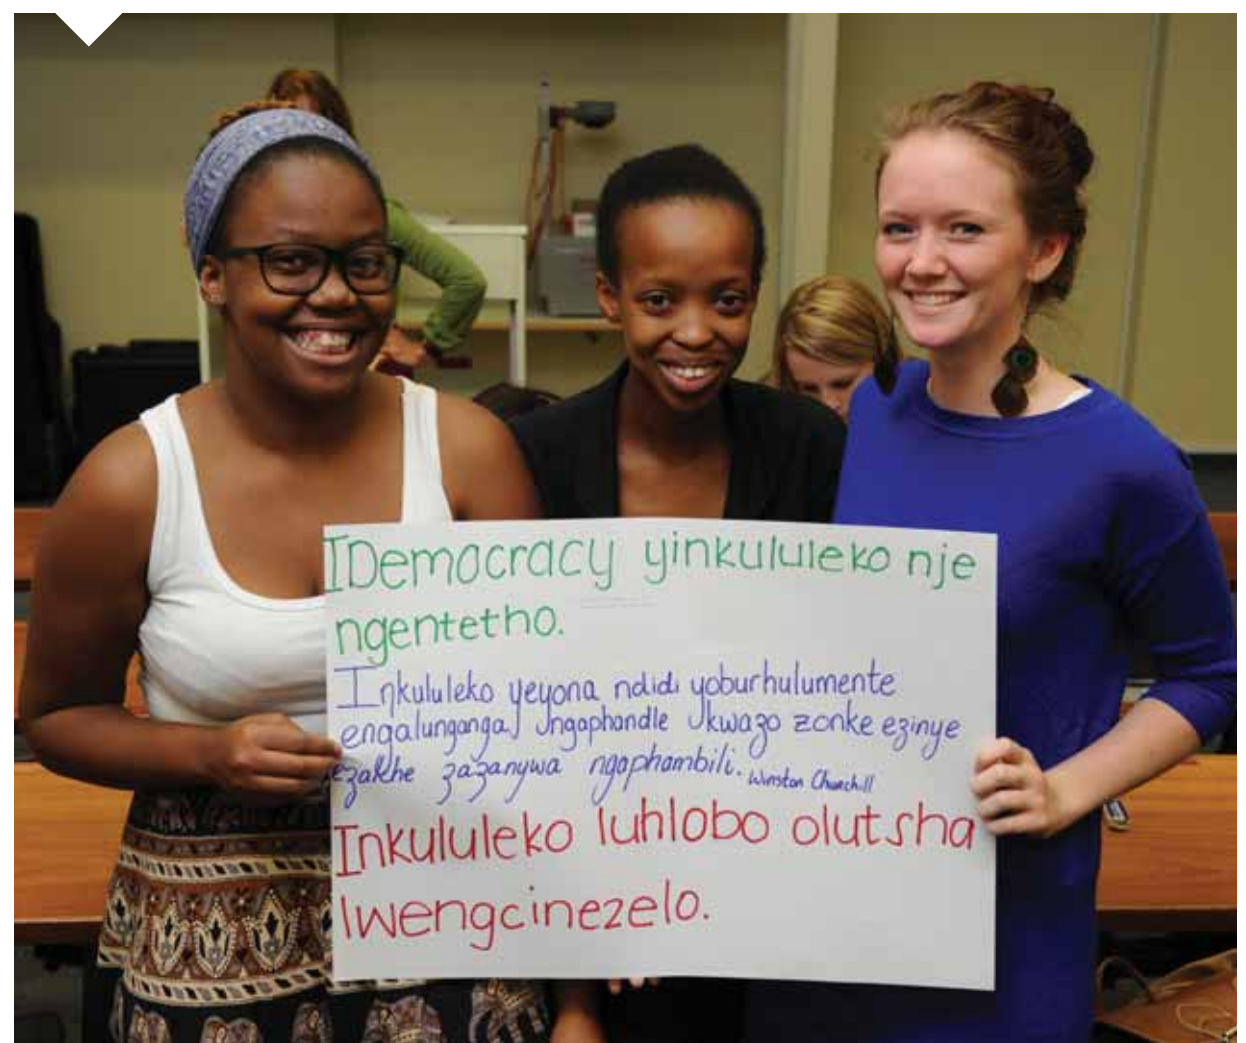 IDemocracy yinkululeko nje
ngentetho.
Inkululeko yeyona ndidi yoburhulumente
engalunganga, ngaphandle kwazo zonke ezinye
ezakhe zazanywa ngaphambili. Winston Churchill
Inkululeko luhlobo olutsha
lwengcinezelo.